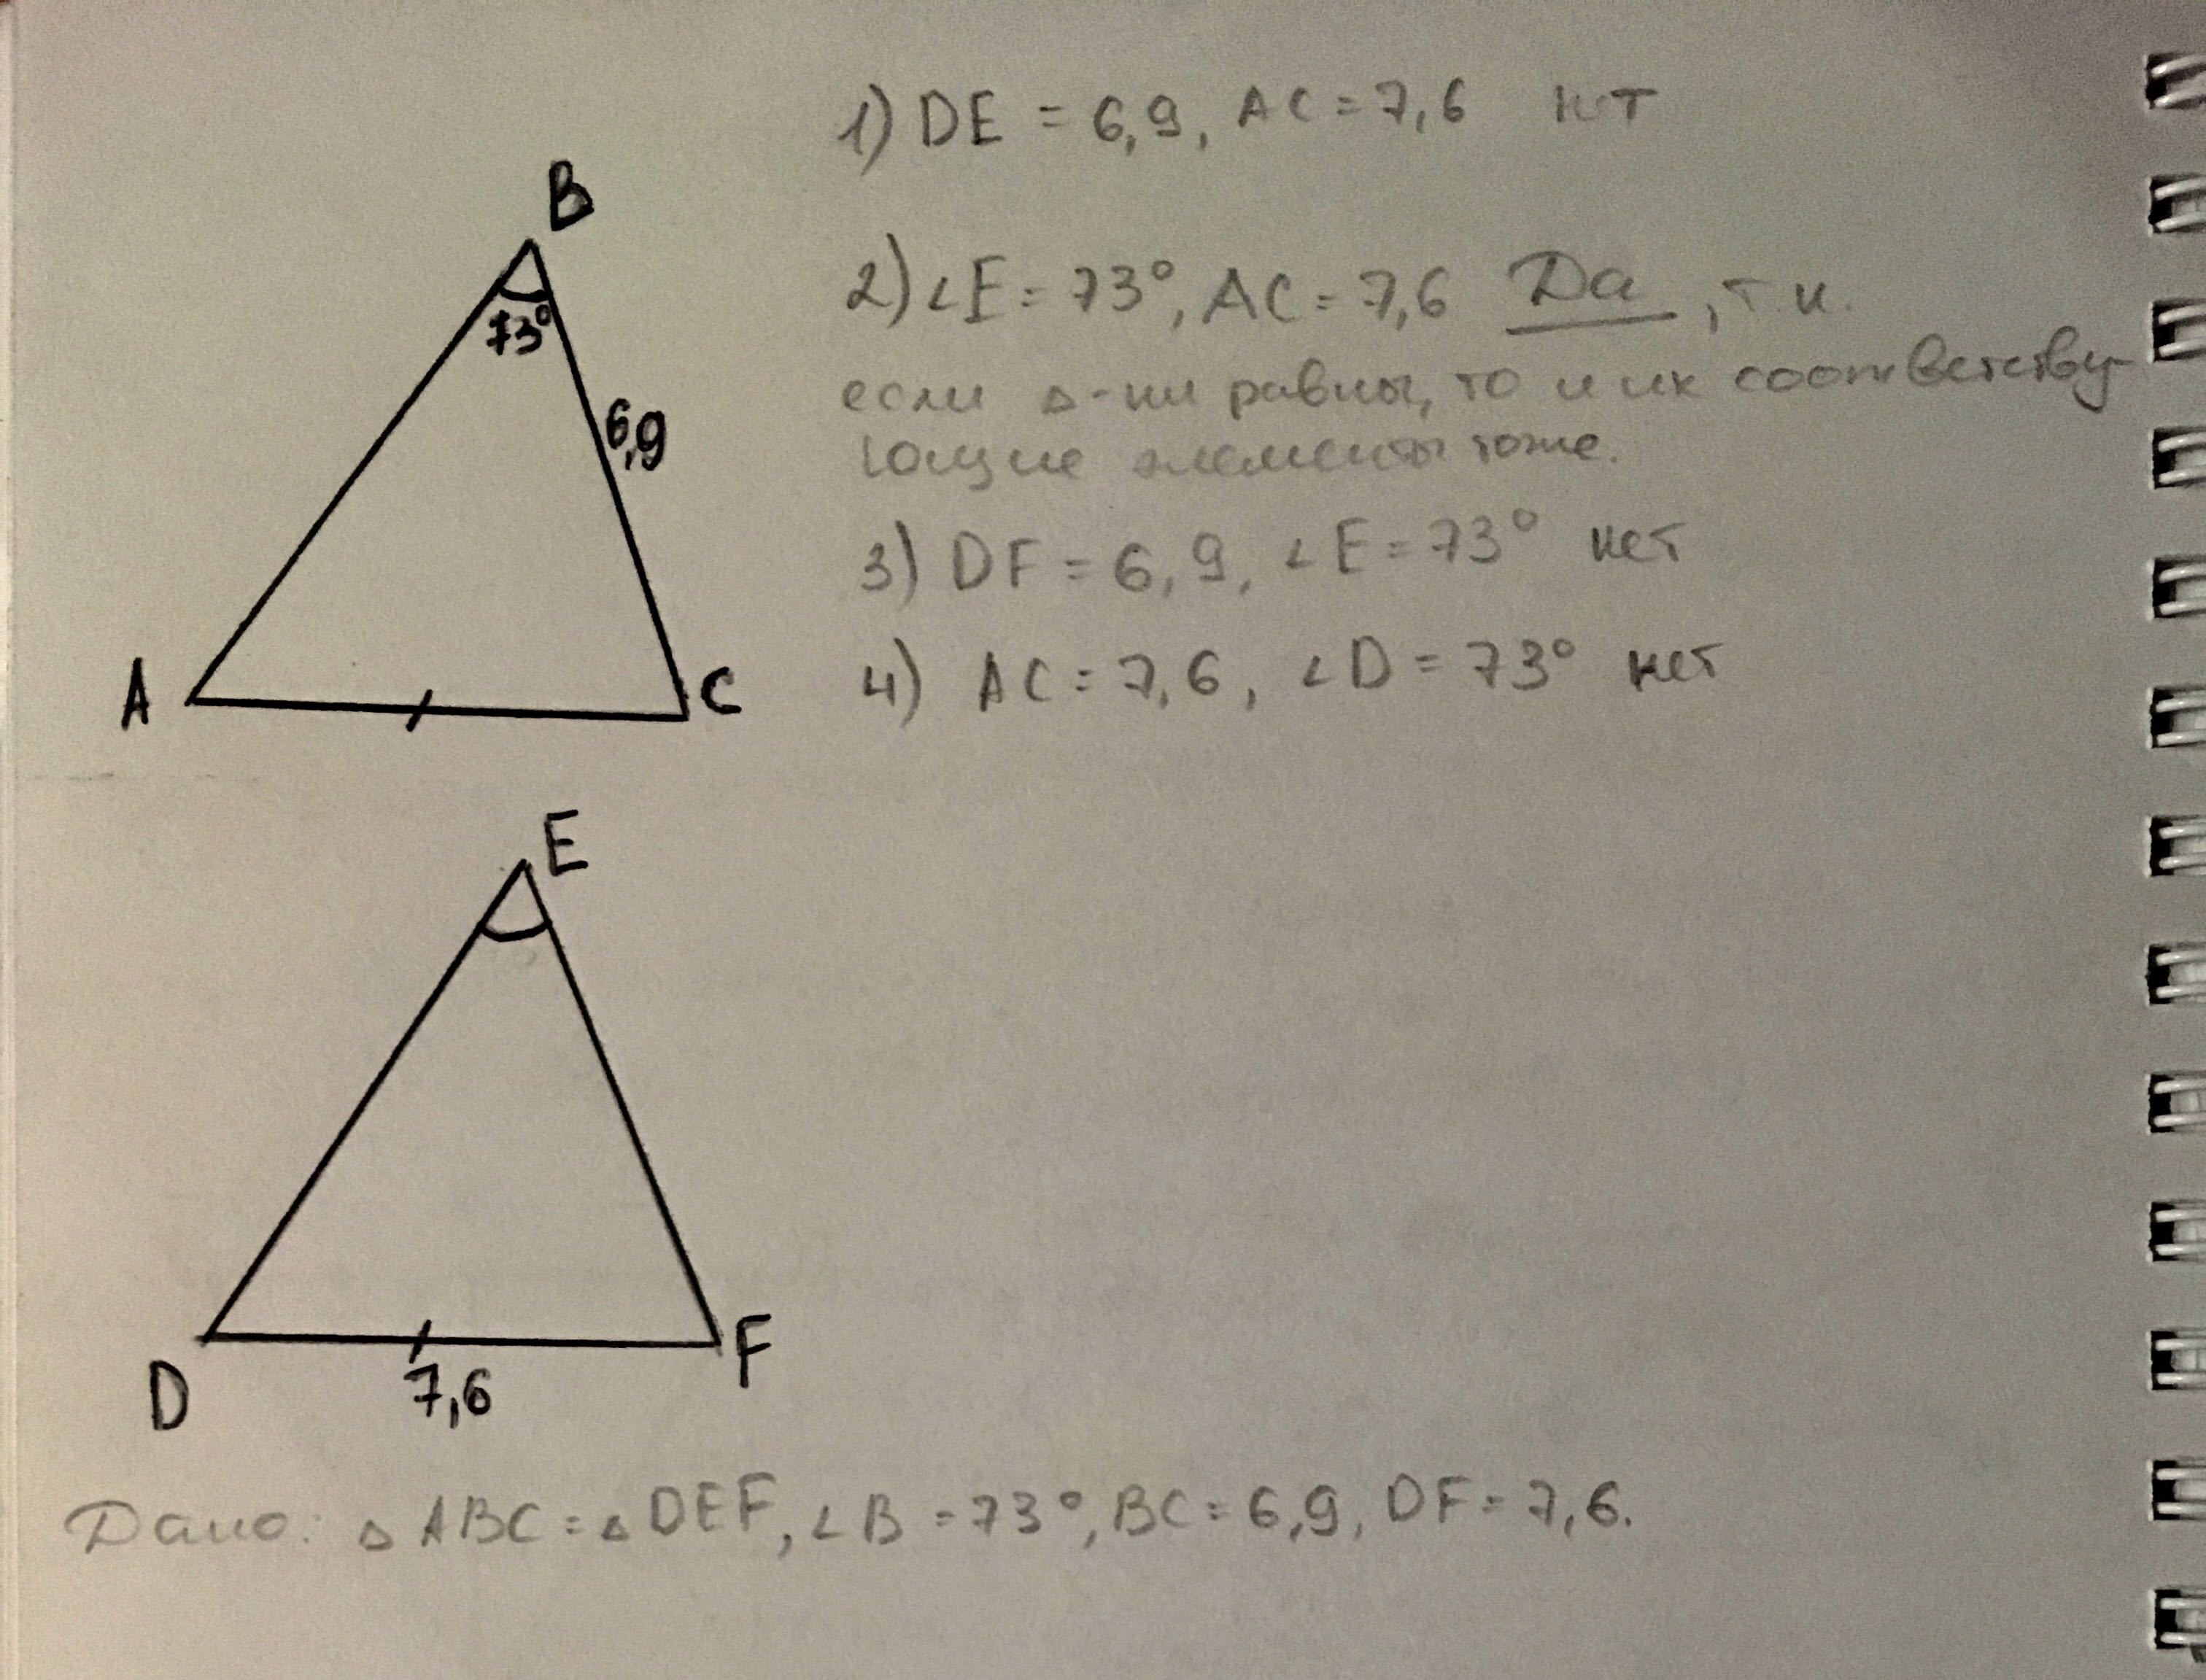 1) DE = 6,9, AC = 7,6 нет
B
73°
2) ∠E = 73°, AC = 7,6 Да, т.к.
если Δ-ки равны, то и их соответству-
ющие элементы тоже.
6,9
3) DF = 6,9, ∠E = 73° нет
A
C
4) AC = 7,6, ∠D = 73° нет
E
D
F
7,6
Дано: Δ ABC = Δ DEF, ∠B = 73°, BC = 6,9, DF = 7,6.